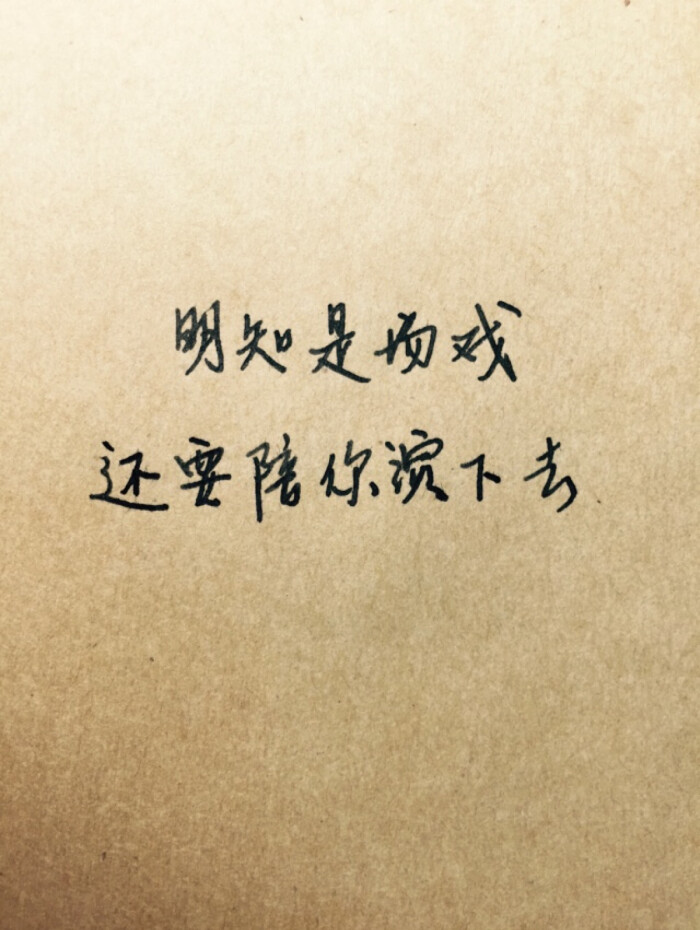 明知是场戏
还要陪你演下去